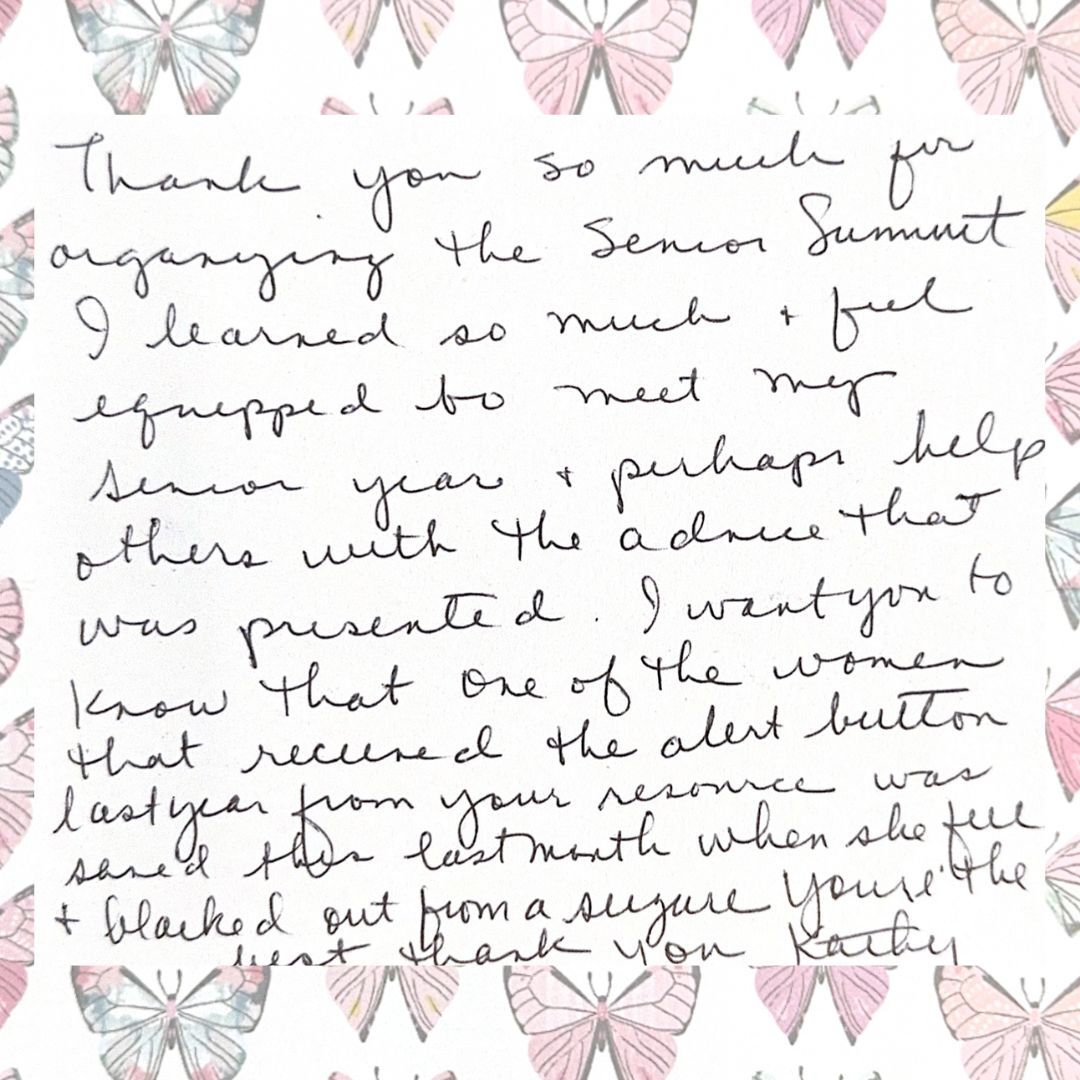 Thank you so much for
organizing the Senior Summit
I learned so much + feel
equipped to meet my
senior year + perhaps help
others with the advice that
was presented. I want you to
know that one of the women
that received the alert button
last year from your resource was
saved this last month when she fell,
+ blacked out from a seizure You're the
best thank you Kathy